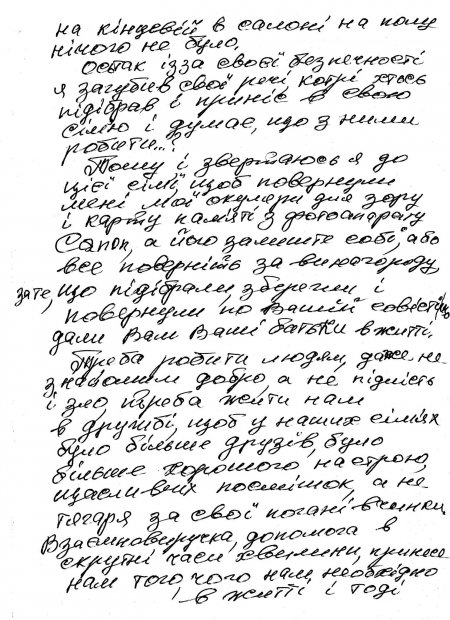 на кінцевій в салоні на полу
нічого не було.
Остак ізза своєї безпечності
я загубив свої речі котрі хтось
підібрав і приніс в свою
сімю і думає, що з ними
робити...?
Тому і звертаюсь я до
цієї сімї, щоб повернули
мені мої окуляри для зору
і карту памяті з фотоапарату
Canon, а його залиште собі, або
все поверніть за винагороду
зате, що підібрали, зберегли і
повернули по Вашій совісті, що
дали Вам Ваші батьки в житті.
Треба робити людям, даже не
знайомим добро, а не підлість
і зло, треба жити нам
в дружбі, щоб у наших сімях
було більше друзів, було
більше хорошого настрою,
щасливих посмішок, а не
тягаря за свої погані вчинки.
Взаємновиручка, допомога в
скрутні часи хвилини, принесе
нам того, чого нам необхідно
в житті і тоді